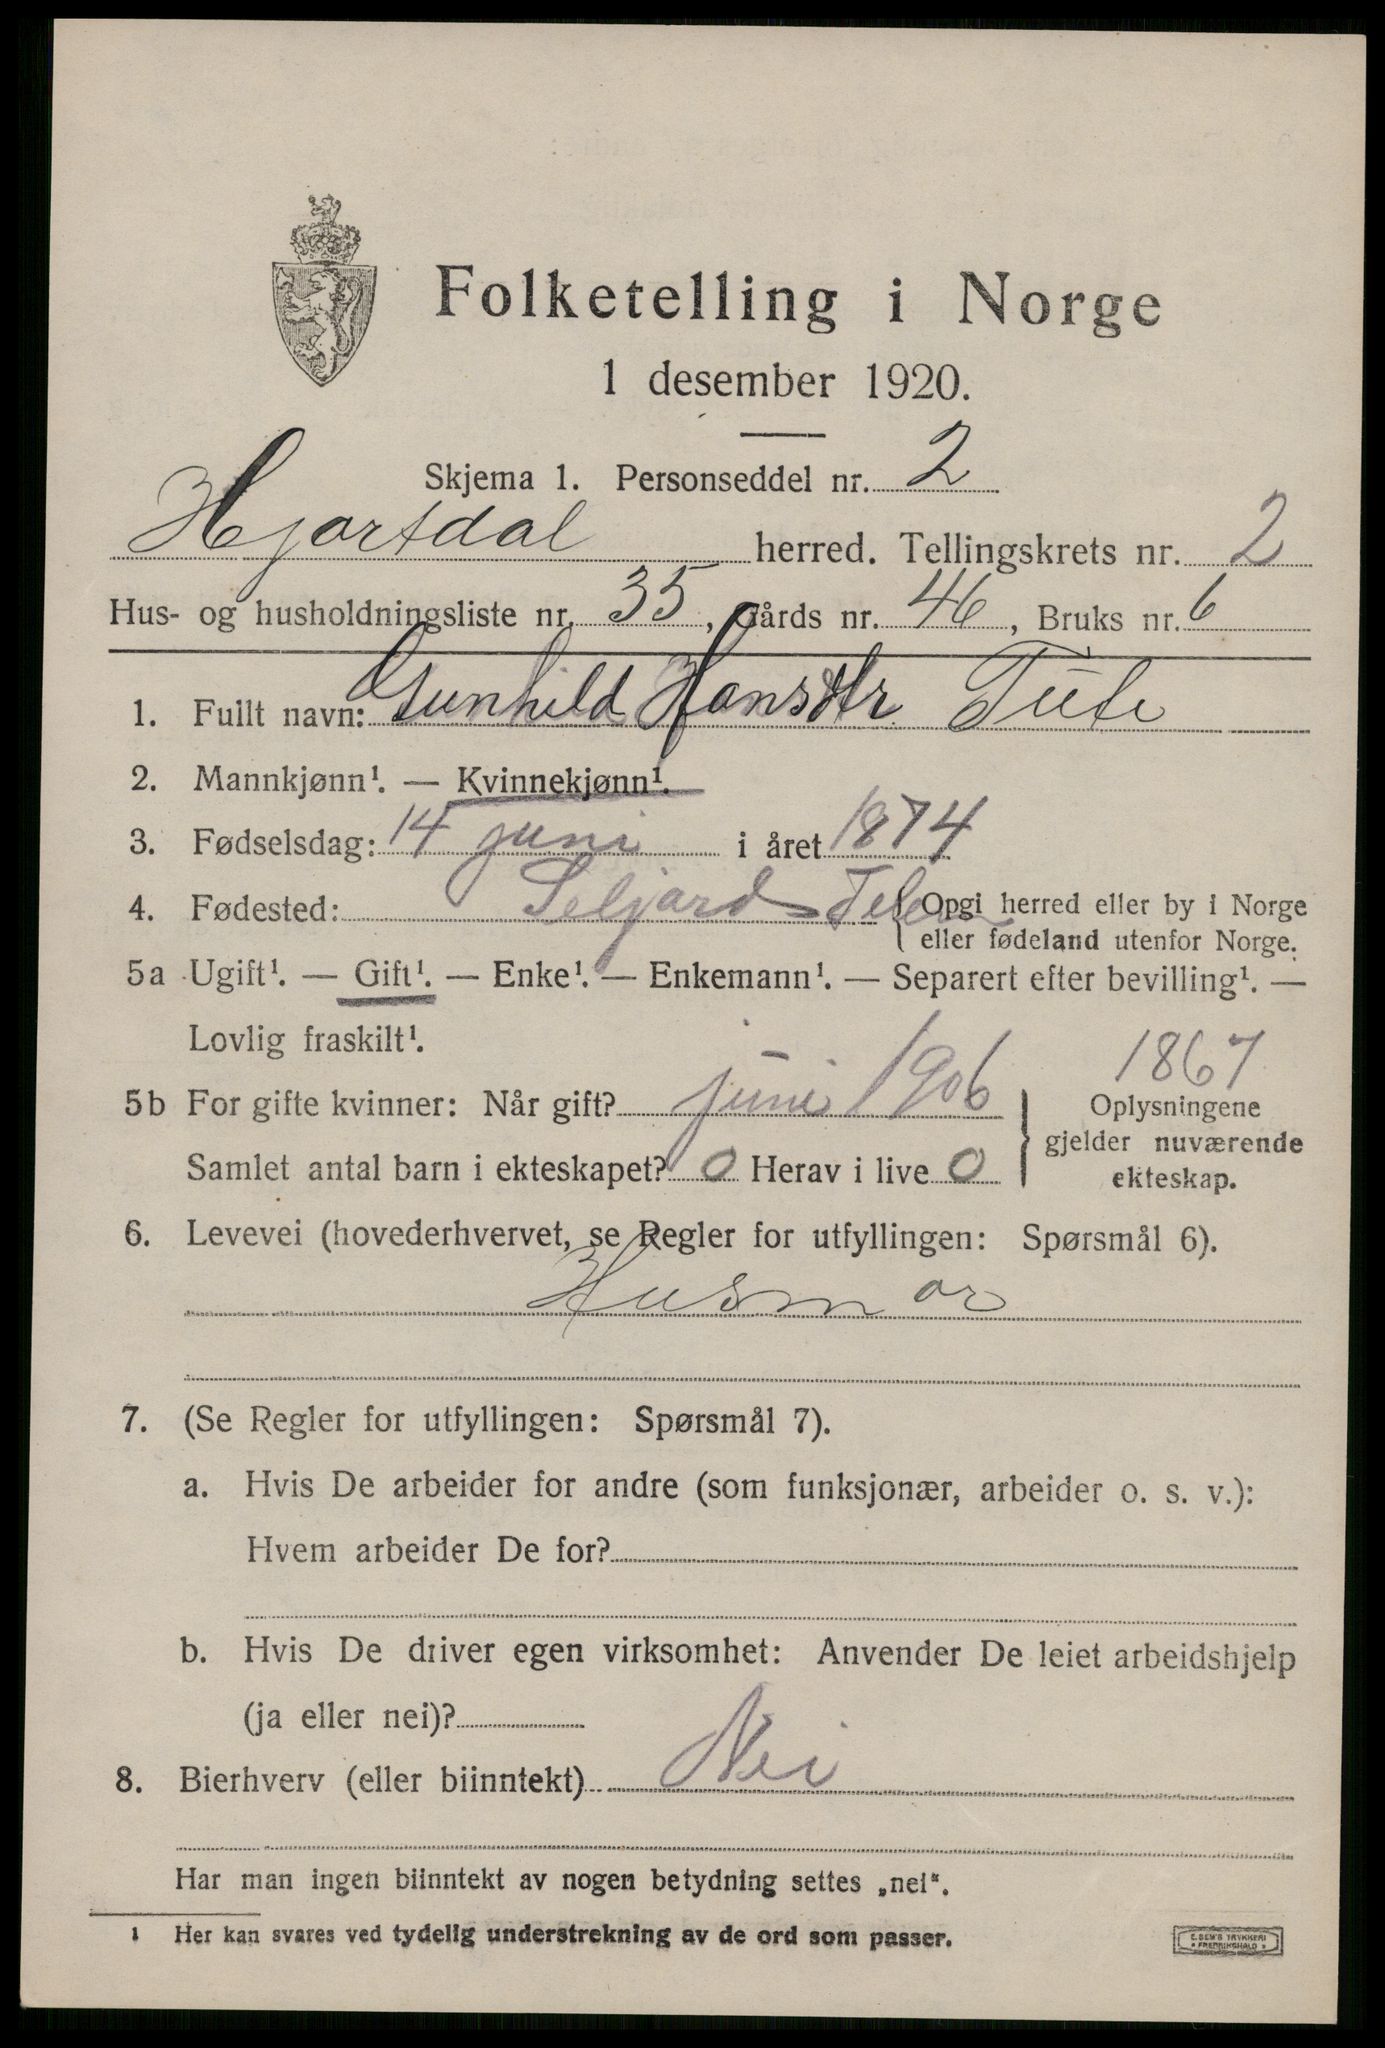 Folketelling i Norge
1 desember 1920.
Skjema 1. Personseddel nr. 2
Hjartdal herred. Tellingskrets nr. 2
Hus- og husholdningsliste nr. 35, Gårds nr. 46, Bruks nr. 6
1. Fullt navn: Gunhild Hansdtr
2. Mannkjønn¹. — Kvinnekjønn¹.
3. Fødselsdag: 14 juni i året 1874
4. Fødested: Seljord Telem {Opgi herred eller by i Norge
eller fødeland utenfor Norge.
5a Ugift¹. — Gift¹. — Enke¹. — Enkemann¹. — Separert efter bevilling¹. —
Lovlig fraskilt¹.
1867
5b For gifte kvinner: Når gift? juni 1906
Samlet antal barn i ekteskapet? 0 Herav i live 0
} Oplysningene
gjelder nuværende
ekteskap.
6. Levevei (hovederhvervet, se Regler for utfyllingen: Spørsmål 6).
Husmor
7. (Se Regler for utfyllingen: Spørsmål 7).
a. Hvis De arbeider for andre (som funksjonær, arbeider o. s. v.):
Hvem arbeider De for?
b. Hvis De driver egen virksomhet: Anvender De leiet arbeidshjelp
(ja eller nei)?
8. Bierhverv (eller biinntekt) Nei
Har man ingen biinntekt av nogen betydning settes „nei“.
1 Her kan svares ved tydelig understrekning av de ord som passer.
E. SEM'S TRYKKERI
* FREDRIKSHALD *